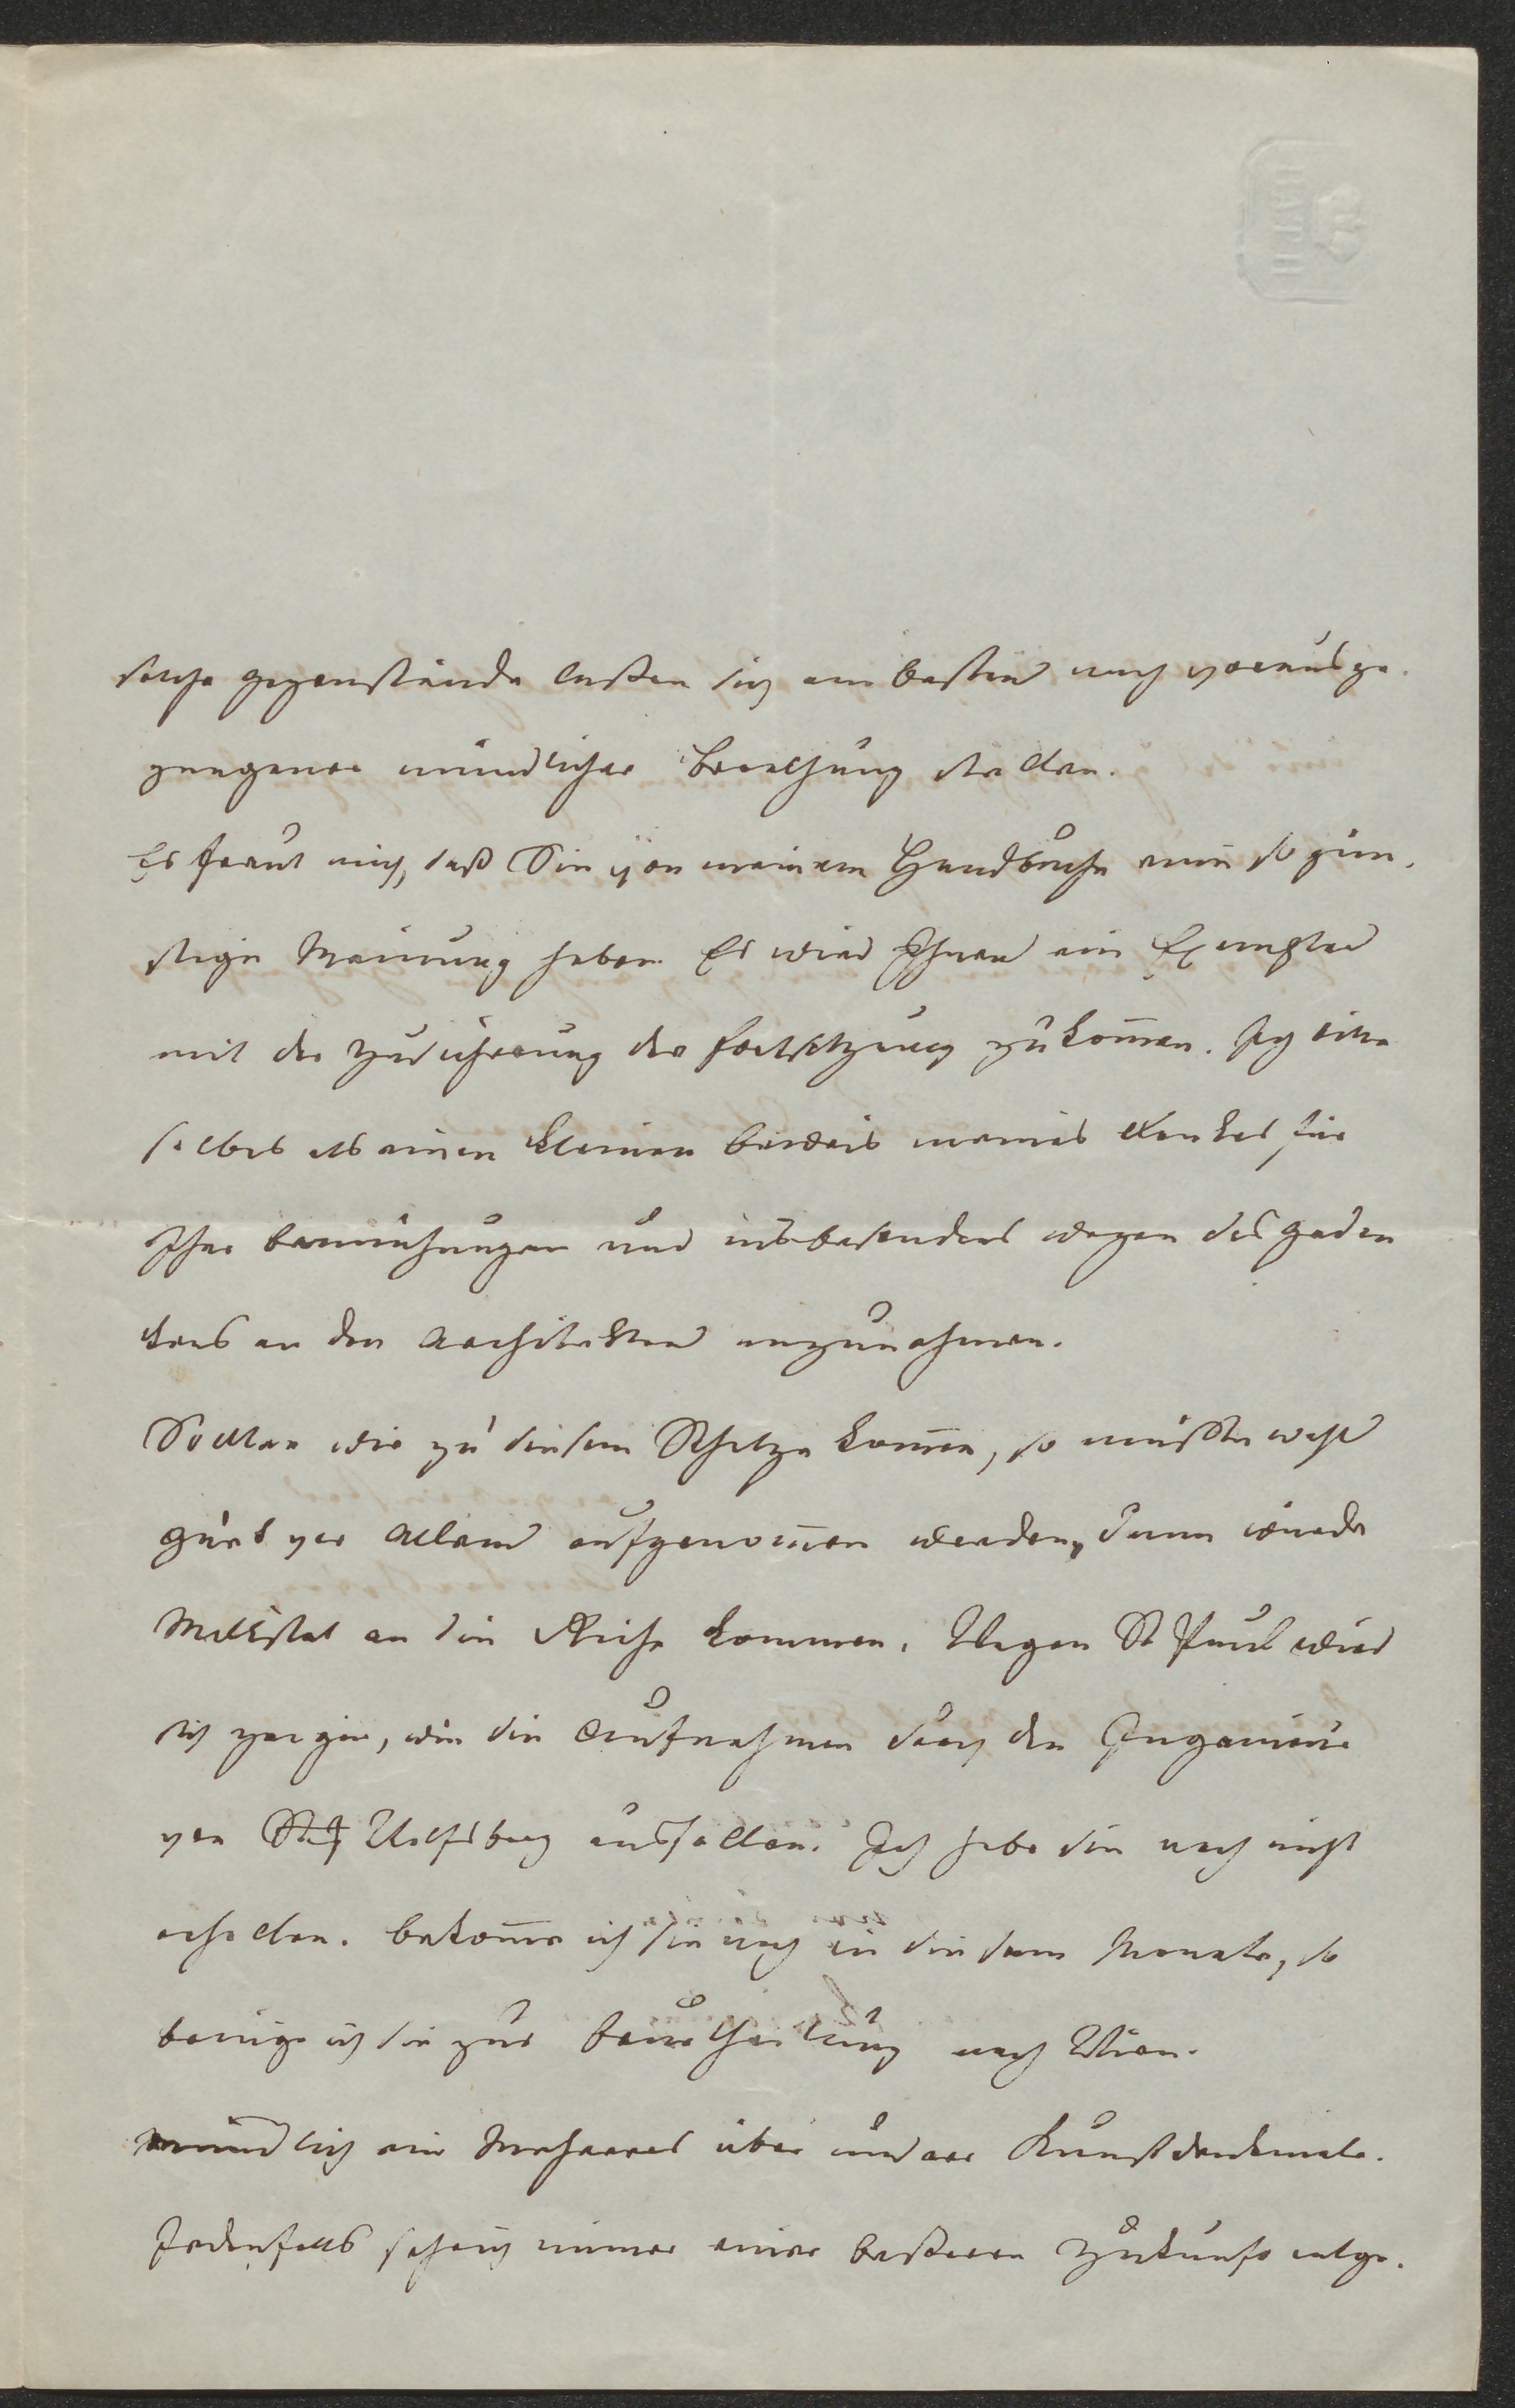 solche Gegenstände lassen sich am besten nach vorausge-
gangener mündlicher Berathung stellen.
Es freut mich, daß Sie von meinem Handbuche eine so gün-
stige Meinung haben. Es wird Ihnen ein Exemplar
mit der Zusicherung der Fortsetzung zukom̅en. Ich bitte
selbes als einen kleinen Beweis meines Dankes für
Ihre Bemühungen und insbesonders wegen des Geden
kens an den Architekten anzunehmen.
Sollen wir zu diesem Schatze kom̅en, so müßte wohl
Gurk vor Allem aufgenom̅en werden, dann würde
Millstat an die Reihe kommen. Wegen St Paul wird
sich zeigen, wie die Aufnahmen durch den Ingenieur
von Wolfsberg ausfallen. Ich habe sie noch nicht
erhalten. Bekom̅e ich sie noch in diesem Monate, so
bringe ich sie zur Beurtheilung nach Wien.
Mündlich ein Mehreres über unsere Kunstdenkmale.
Jedenfalls sehe ich immer einer besseren Zukunft entge-